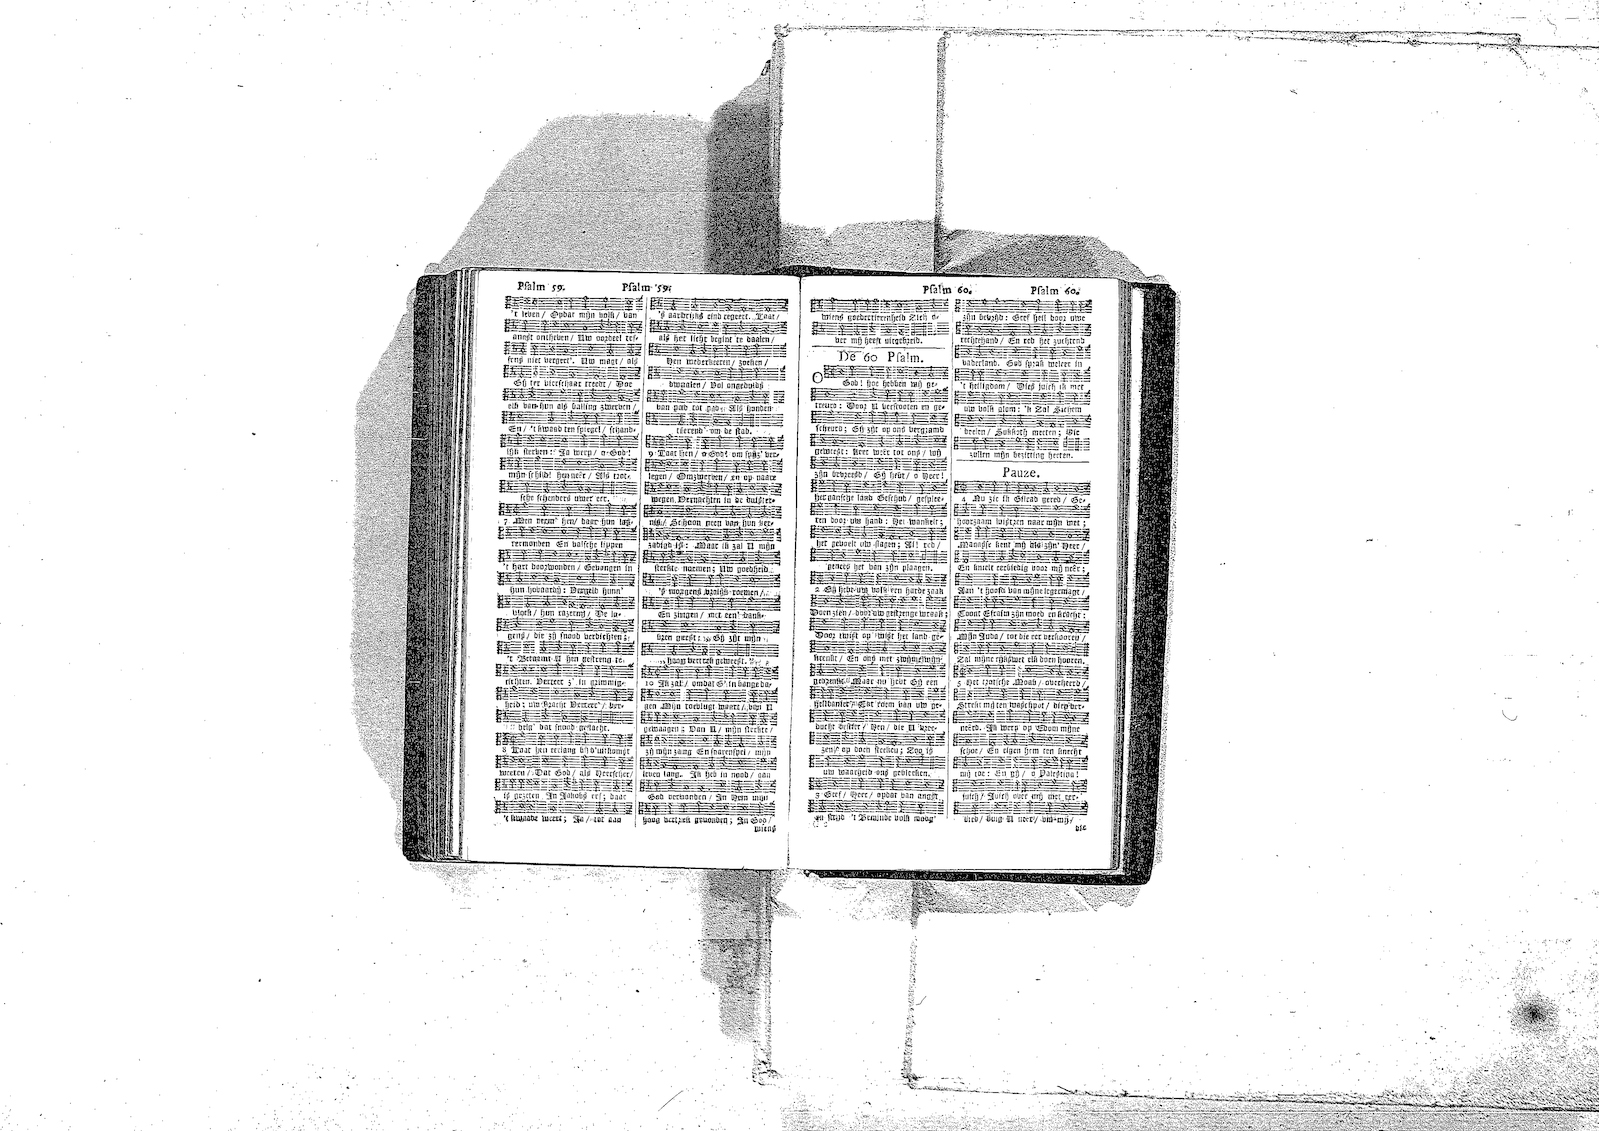 Psalm 59.
't leven / Opdat mijn volk / van
angst ontheven / Uw oordeel ref-
fens niet vergeet'. Uw magt / als
Gij ter vierschaar treedt / Doe
elk van hun als balling zwerven /
En / 't kwaad ten spiegel / schand-
lijk sterven: Ja werp / o God!
mijn schild! hen neêr / Als
sche schenders uwer eer.
7 Men neem' hen / daar hun las-
termonden En valsche lippen
't hart doorwonden / Gevangen in
hun hovaardij: Vergeld hunn'
vloek / hun razernij / De
gens / die zij snood verdichten;
't Betaamt U hen gestreng te
richten. Verteer z' in grimmig-
heid: uw kracht Verteer' / ver-
delg' dat snood geslacht.
8 Laat hen eerlang bij d'uitkomst
weeten / Dat God / als Heerscher /
is gezeten In Jakobs erf; daar
't kwaade weert; Ja / tot aan
Psalm 59.
's aardrijks eind regeert. Laat /
als het licht begint te daalen /
Hen wederkeeren / zoeken /
dwaalen / Vol ongedulds
van pad tot pad; Als honden
tierend' om de stad.
9 Laat hen / o God! om spijs' ver-
legen / Omzwerven / en op naare
wegen Vernachten in de duister-
nis / Schoon geen van hun ver-
zadigd is: Maar ik zal U mijn
sterkte noemen; Uw goedheid
's morgens vrolijk roemen /
En zingen / met een' dank-
bren geest: Gij zijt mijn
hoog vertrek geweest.
10 Ik zal / omdat G' in bange da-
gen Mijn toevlugt waart / van U
gewaagen; Van U / mijn sterkte /
zij mijn zang En snarenspel / mijn
leven lang. Ik heb in nood / aan
God verbonden / In Hem mijn
hoog vertrek gevonden; In God /
wiens
Psalm 60.
wiens goedertierenheid Zich o-
ver mij heeft uitgebreid.
De 60 Psalm.
O God! hoe hebben wij ge-
treurd: Door U verstooten en ge-
scheurd; Gij zijt op ons vergramd
geweest: Keer weêr tot ons / wij
zijn bevreesd / Gij hebt / o Heer!
het gansche land Geschud / gesplee-
ten door uw hand: Het wankelt;
het gevoelt uw slagen; Ai! red /
genees het van zijn plaagen.
2 Gij hebt uw volk een harde zaak
Doen zien / door uw gestrenge wraak;
Door twist op twist het land ge-
krenkt / En ons met zwijmelwijn
gedrenkt. Maar nu hebt Gij een
heilbanier Tot roem van uw ge-
ducht bestier / Hen / die U vree-
zen / op doen steeken; Zoo is
uw waarheid ons gebleeken.
3 Geef / Heer / opdat van angst
en strijd 't Beminde volk moog'
Psalm 60.
zijn bevrijd: Geef heil door uwe
rechtehand / En red het zuchtend
vaderland. God sprak weleer in
't heiligdom / Dies juich ik met
uw volk alom: 'k Zal Sichem
deelen / Sukkoth meeten; Die
zullen mijn bezitting heeten.
Pauze.
4 Nu zie ik Gilead gered / Ge-
hoorzaam luist'ren naar mijn wet;
Manasse kent mij als zijn' Heer /
En knielt eerbiedig voor mij neêr;
Aan 't hoofd van mijne legermagt /
Toont Efraïm zijn moed en kracht;
Mijn Juda / tot die eer verkooren /
Zal mijne rijkswet elk doen hooren.
5 Het trotsche Moab / overheerd /
Strekt mij ten waschpot / diep ver-
neêrd. Ik werp op Edom mijne
schoe / En eigen hem ten knecht
mij toe: En gij / o Palestina!
juich / Juich over mij met eer-
bied / buig U neer / om mij /
die